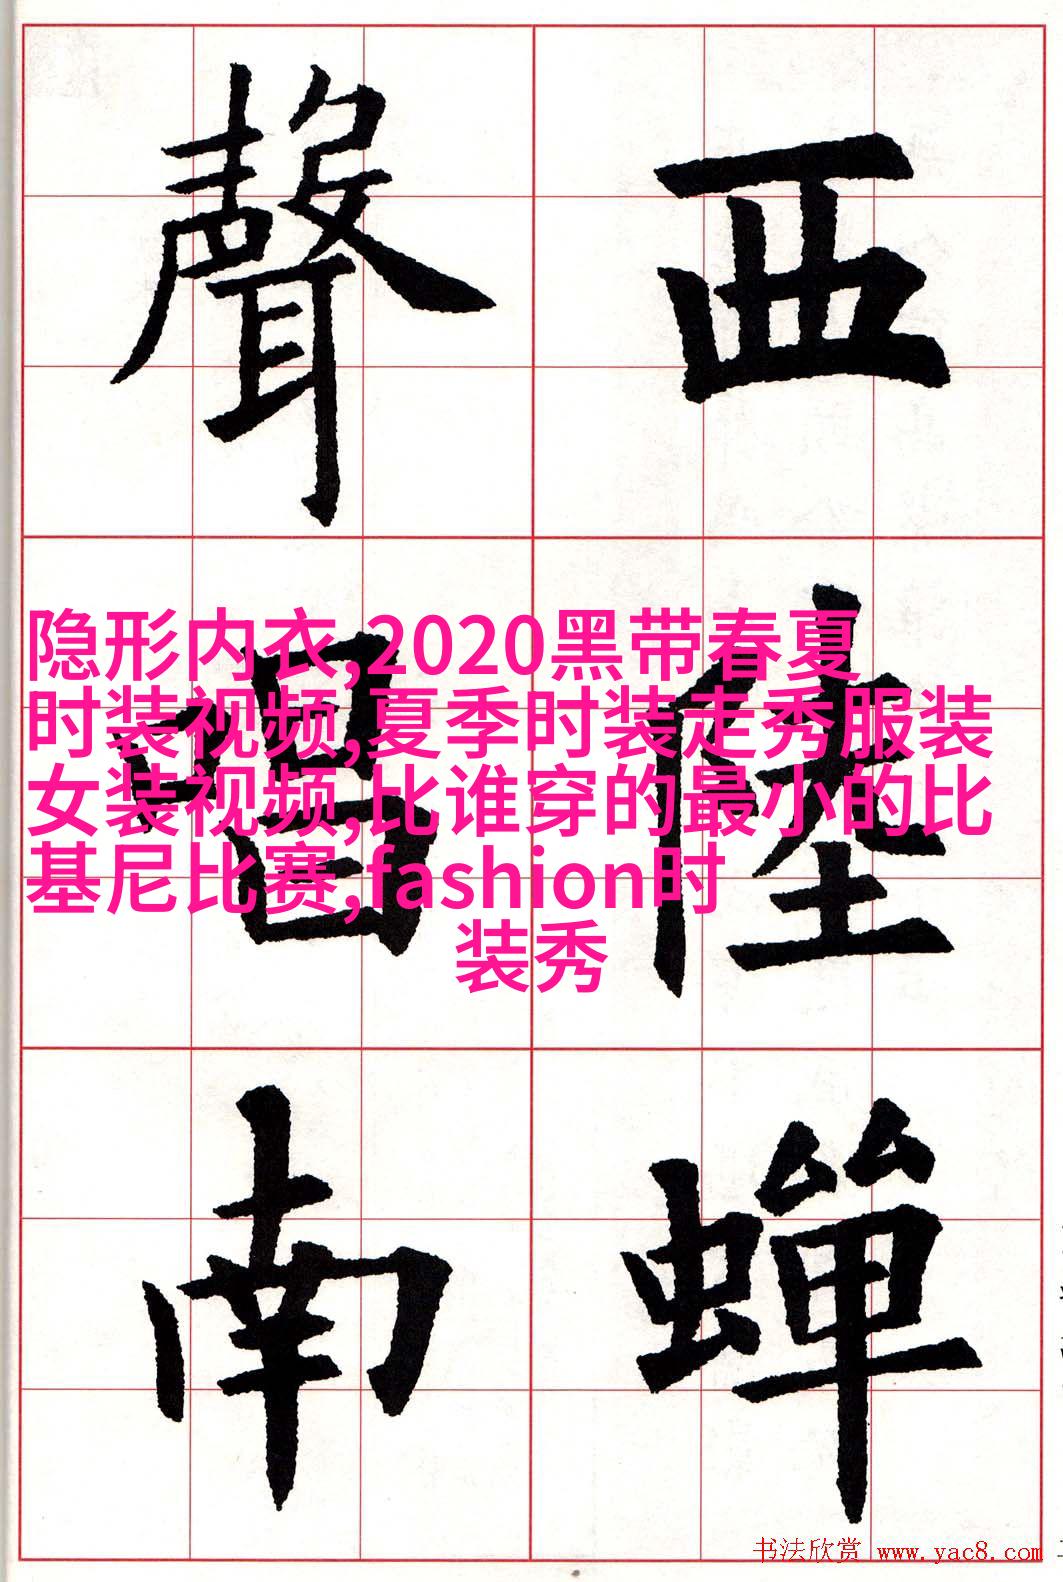 西陸蟬
聲唱南
隐形内衣,2020黑带春夏
时装视频,夏季时装走秀服装
女装视频,比谁穿的最小的比
基尼比赛,fashion时
装秀
书法欣赏 www.yac8.com